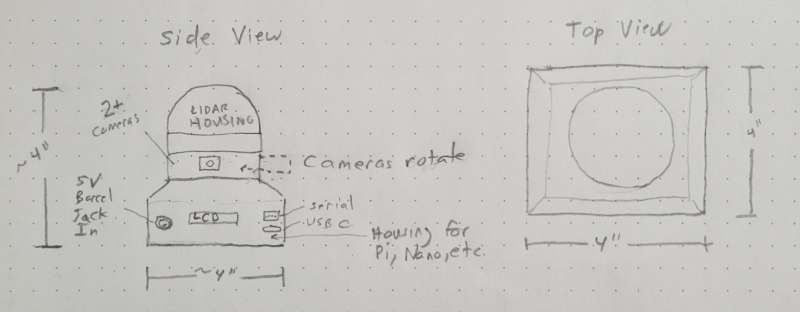 Side View
Top View
LIDAR
HOUSING
2+
Cameras
~4"
Cameras rotate
5V
Barrel
Jack
In
LCD
serial
USB C
Housing for
Pi, Nano, etc.
~4"
4"
4"